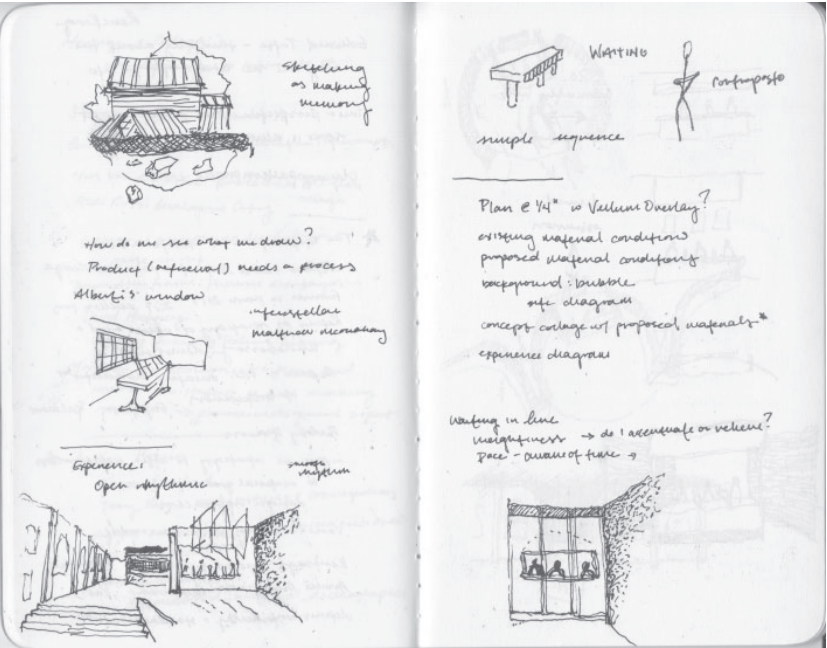 Sketching
as making
memory
How do we see what we draw?
Product (retrieval) needs a process
Alberti's window
interstellar
Experience:
Open rhythmic
WAITING
contraposto
simple sequence
Plan @ 1/4" w Vellum Overlay?
existing material conditions
proposed material conditions
background: bubble
site diagram
concept collage w/ proposed materials*
experience diagram
Waiting in line
weightiness → do I accentuate or relieve?
Pace - aware of time →